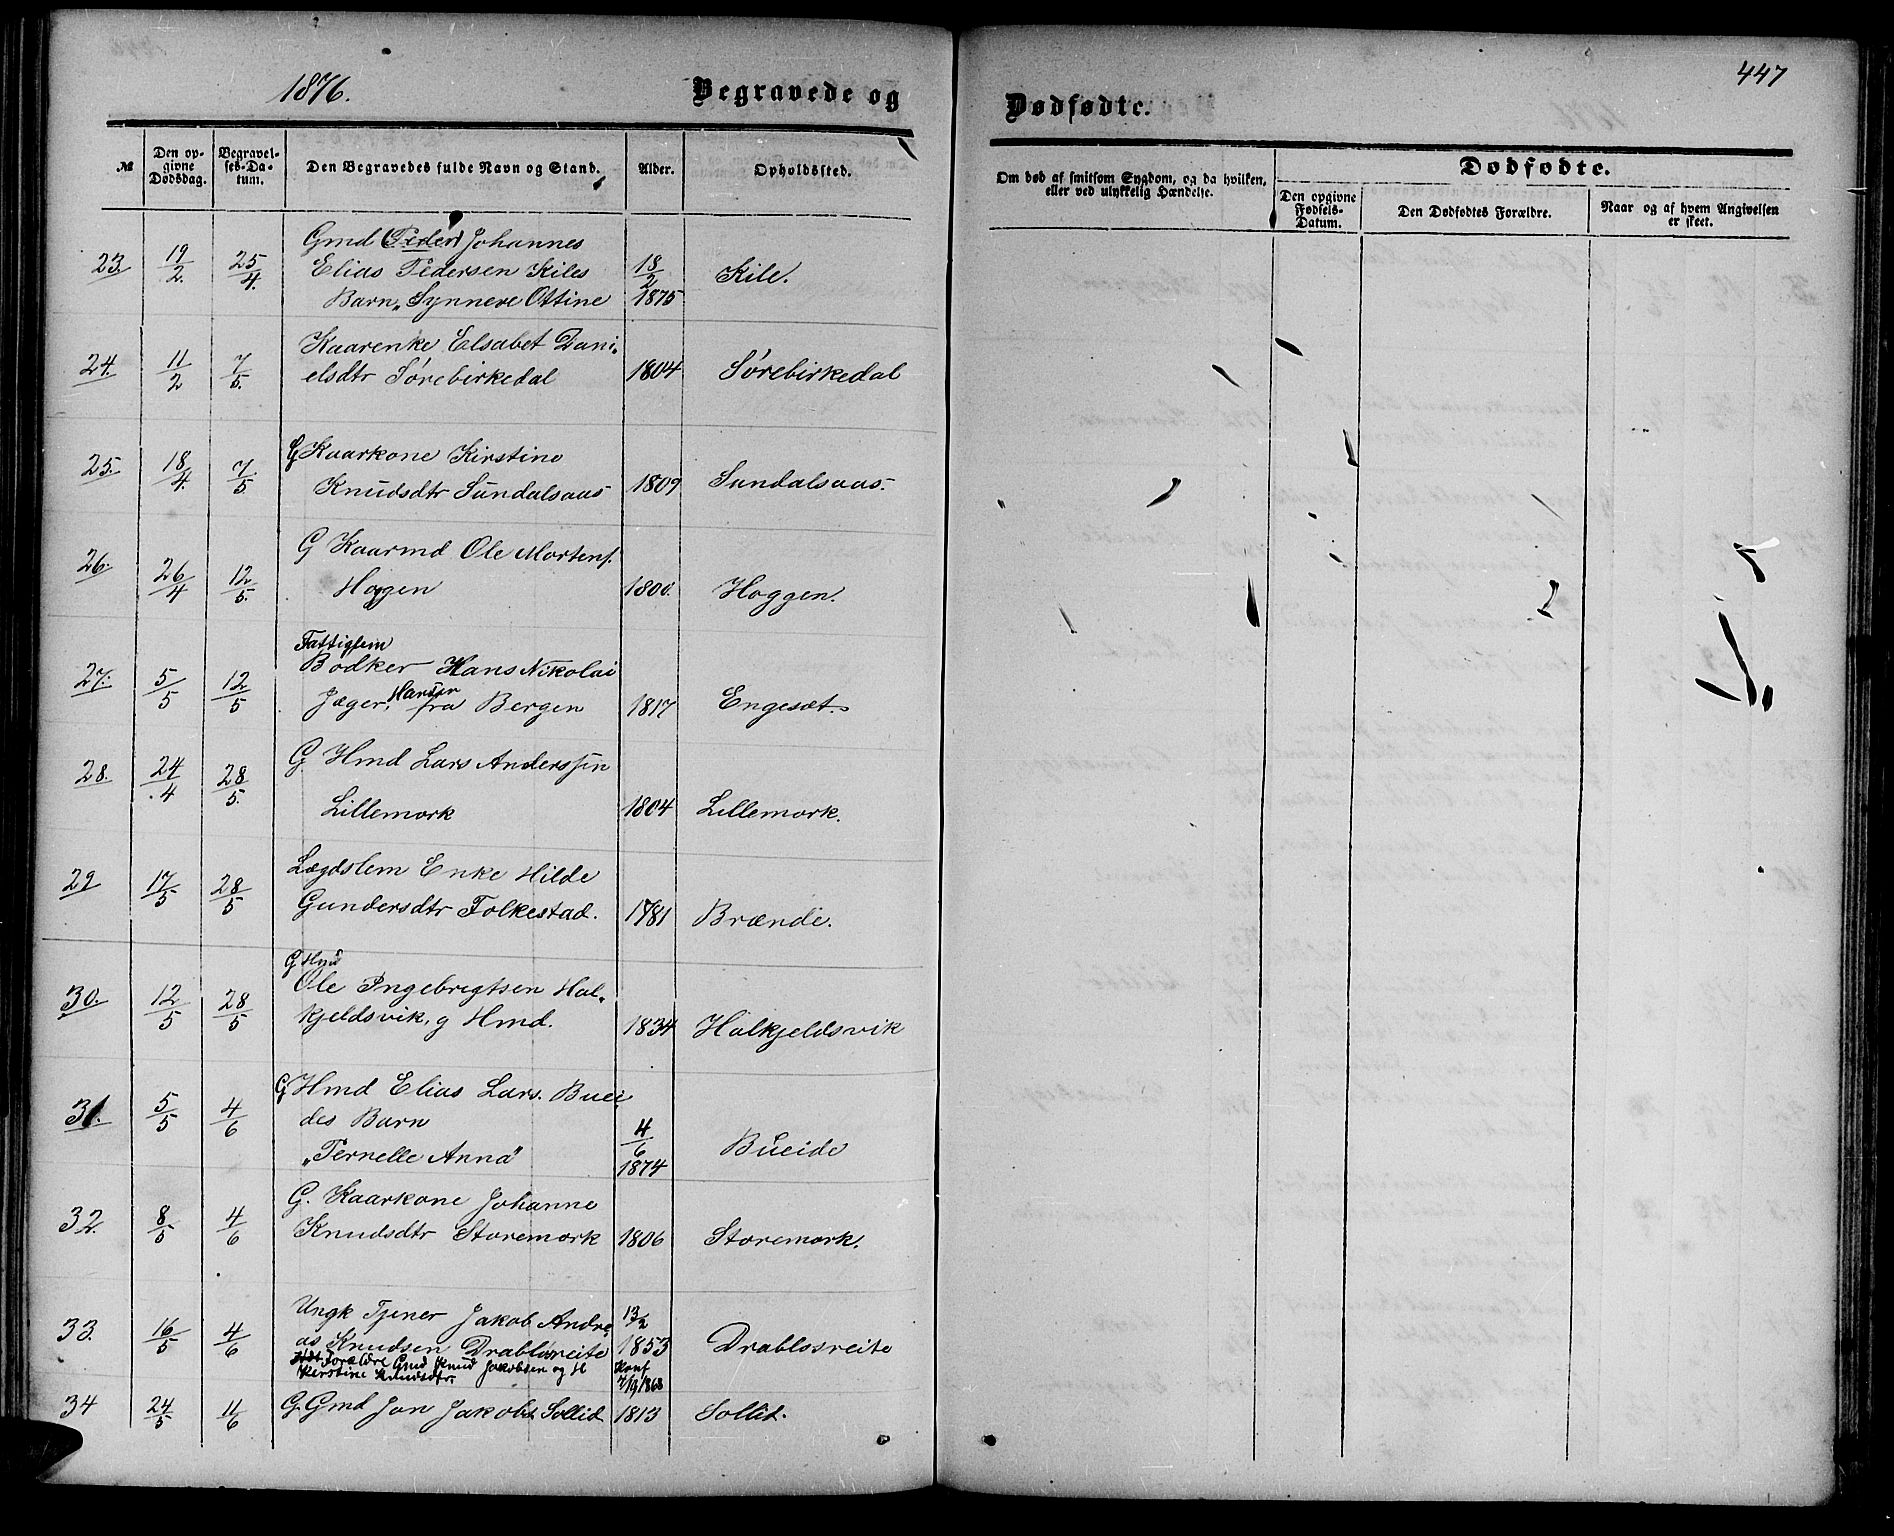 1876.
Begravede og
Dødfødte.
447
№
Den opgivne Dødsdag.
Begravelses-Datum.
Den Begravedes fulde Navn og Stand.
Alder.
Opholdssted.
Om død af smitsom Sygdom, og da hvilken, eller ved ulykkelig Hændelse.
Dødfødte.
Den opgivne Fødsels-Datum.
Den Dødfødtes Forældre.
Naar og af hvem Angivelsen er skeet.
23. 19/2. 25/4. Gmd (Peder) Johannes
Elias Pedersen Kiles 18/2 Kile.
Barn „Synneve Ottine 1875
24. 11/2 7/5. Kaarenke Elsabet Dani-
elsdtr Sørebirkedal 1804 Sørebirkedal
25. 18/4. 7/5. G Kaarkone Kirstine
Knudsdtr Sundalsaas 1809 Sundalsaas.
26. 26/4 12/5. G Kaarmd Ole Mortens.
Hoggen 1800. Hoggen.
Fattiglem
27. 5/5 12/5 Bødker Hans Nikolai
Jæger, Hansen fra Bergen 1817 Engesæt.
28. 24/4 28/5. G. Hmd Lars Anderssen
Lillemork 1804 Lillemork.
29 17/5 28/5 Lægdslem Enke Hilde
Gundersdtr Folkestad. 1781 Brænde.
G Hmd
30. 12/5 28/5 Ole Ingebrigtsen Hal-
kjeldsvik, g Hmd. 1834 Halkjeldsvik
31. 5/5 4/6 G Hmd Elias Lars. Buei-
des Barn 4/6
„Pernelle Anna" 1874 Bueide
32. 8/5 4/6 G. Kaarkone Johanne
Knudsdtr Storemork 1806 Storemork.
33. 16/5 4/6 Ungk Tjener Jakob Andre- 13/2
as Knudsen Drabløsreite 1853 Drablosreite
Forældre Gmd Knud Jakobsen og H Konf
Kirstine Knudsdtr. 7/9 1868
34 24/5 11/6 G. Gmd Jon Jakobs Sollid 1813 Sollid.